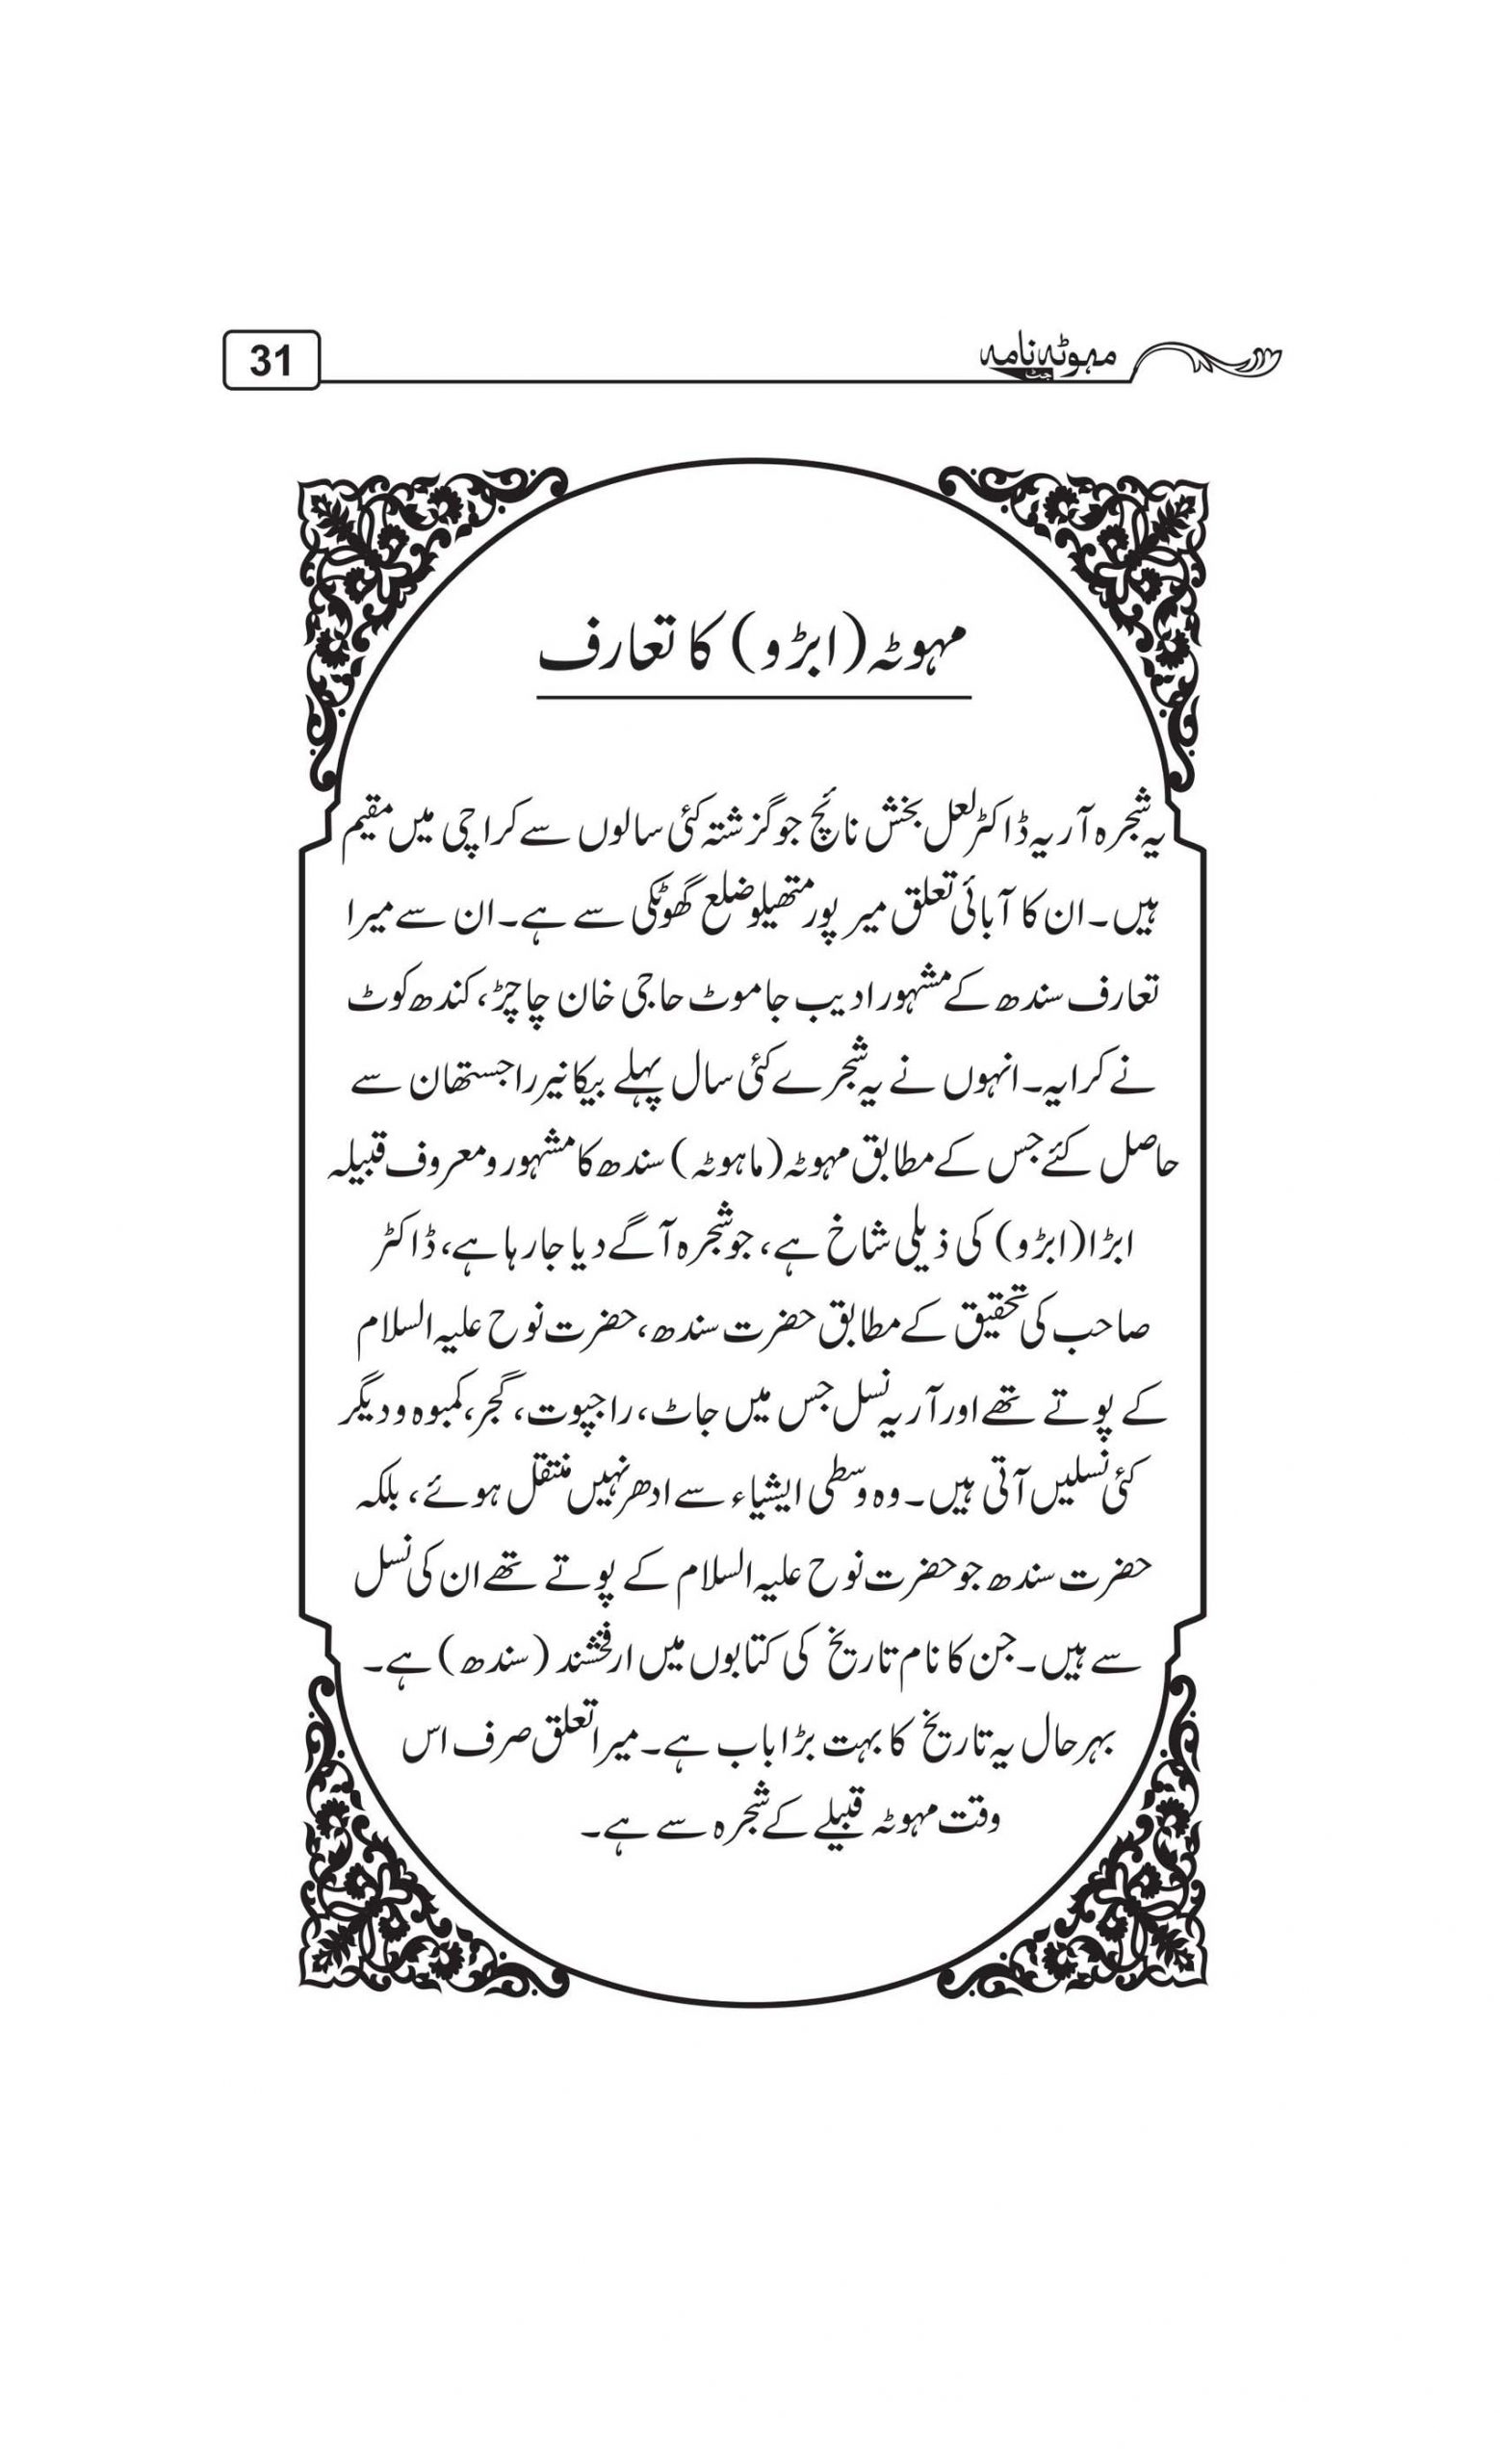 مہوٹہ نامہ
جٹ
31
مہوٹہ (ابڑو) کا تعارف
یہ شجرہ آریہ ڈاکٹر لعل بخش نائچ جو گزشتہ کئی سالوں سے کراچی میں مقیم
ہیں۔ ان کا آبائی تعلق میر پور متھیلو ضلع گھوٹکی سے ہے۔ ان سے میرا
تعارف سندھ کے مشہور ادیب جاموٹ حاجی خان چاچڑ، کندھ کوٹ
نے کرایہ۔ انہوں نے یہ شجرے کئی سال پہلے بیکانیر راجستھان سے
حاصل کئے جس کے مطابق مہوٹہ (ماہوٹہ) سندھ کا مشہور و معروف قبیلہ
ابڑا (ابڑو) کی ذیلی شاخ ہے، جو شجرہ آگے دیا جا رہا ہے، ڈاکٹر
صاحب کی تحقیق کے مطابق حضرت سندھ، حضرت نوح علیہ السلام
کے پوتے تھے اور آریہ نسل جس میں جاٹ، راجپوت، گجر، کمبوہ و دیگر
کئی نسلیں آتی ہیں۔ وہ وسطی ایشیاء سے ادھر نہیں منتقل ہوئے، بلکہ
حضرت سندھ جو حضرت نوح علیہ السلام کے پوتے تھے ان کی نسل
سے ہیں۔ جن کا نام تاریخ کی کتابوں میں ارفخشند (سندھ) ہے۔
بہرحال یہ تاریخ کا بہت بڑا باب ہے۔ میرا تعلق صرف اس
وقت مہوٹہ قبیلے کے شجرہ سے ہے۔